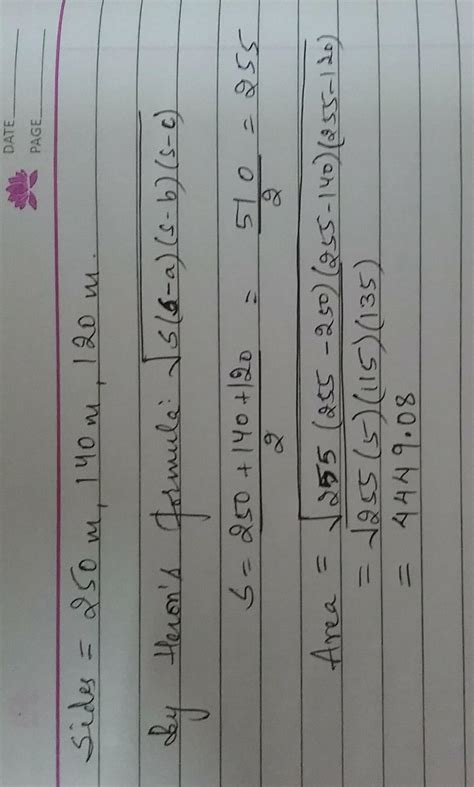 DATE
PAGE
Sides = 250 m, 140 m, 120 m.
By Heron's formula: √s(s-a)(s-b)(s-c)
s = 250 + 140 + 120 / 2 = 510 / 2 = 255
Area = √255 (255 - 250) (255 - 140) (255 - 120)
= √255 (5) (115) (135)
= 4449.08